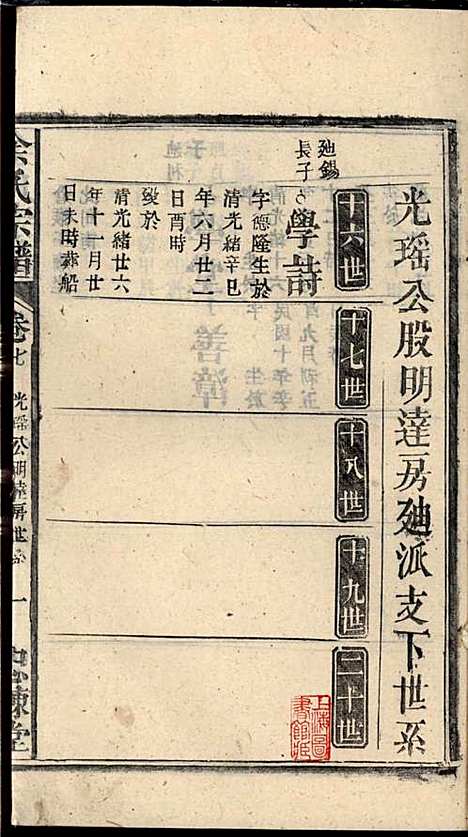 光瑤公股明達房廸派支下世系
十六世
十七世
十八世
十九世
二十世
廸錫
長子
學詩
字德隆生於
清光緒辛巳
年六月廿二
日酉時
歿於
清光緒廿六
年十一月廿
日未時葬船
余氏宗譜
卷七
光瑤公明達房世系
一
上海圖
書館藏